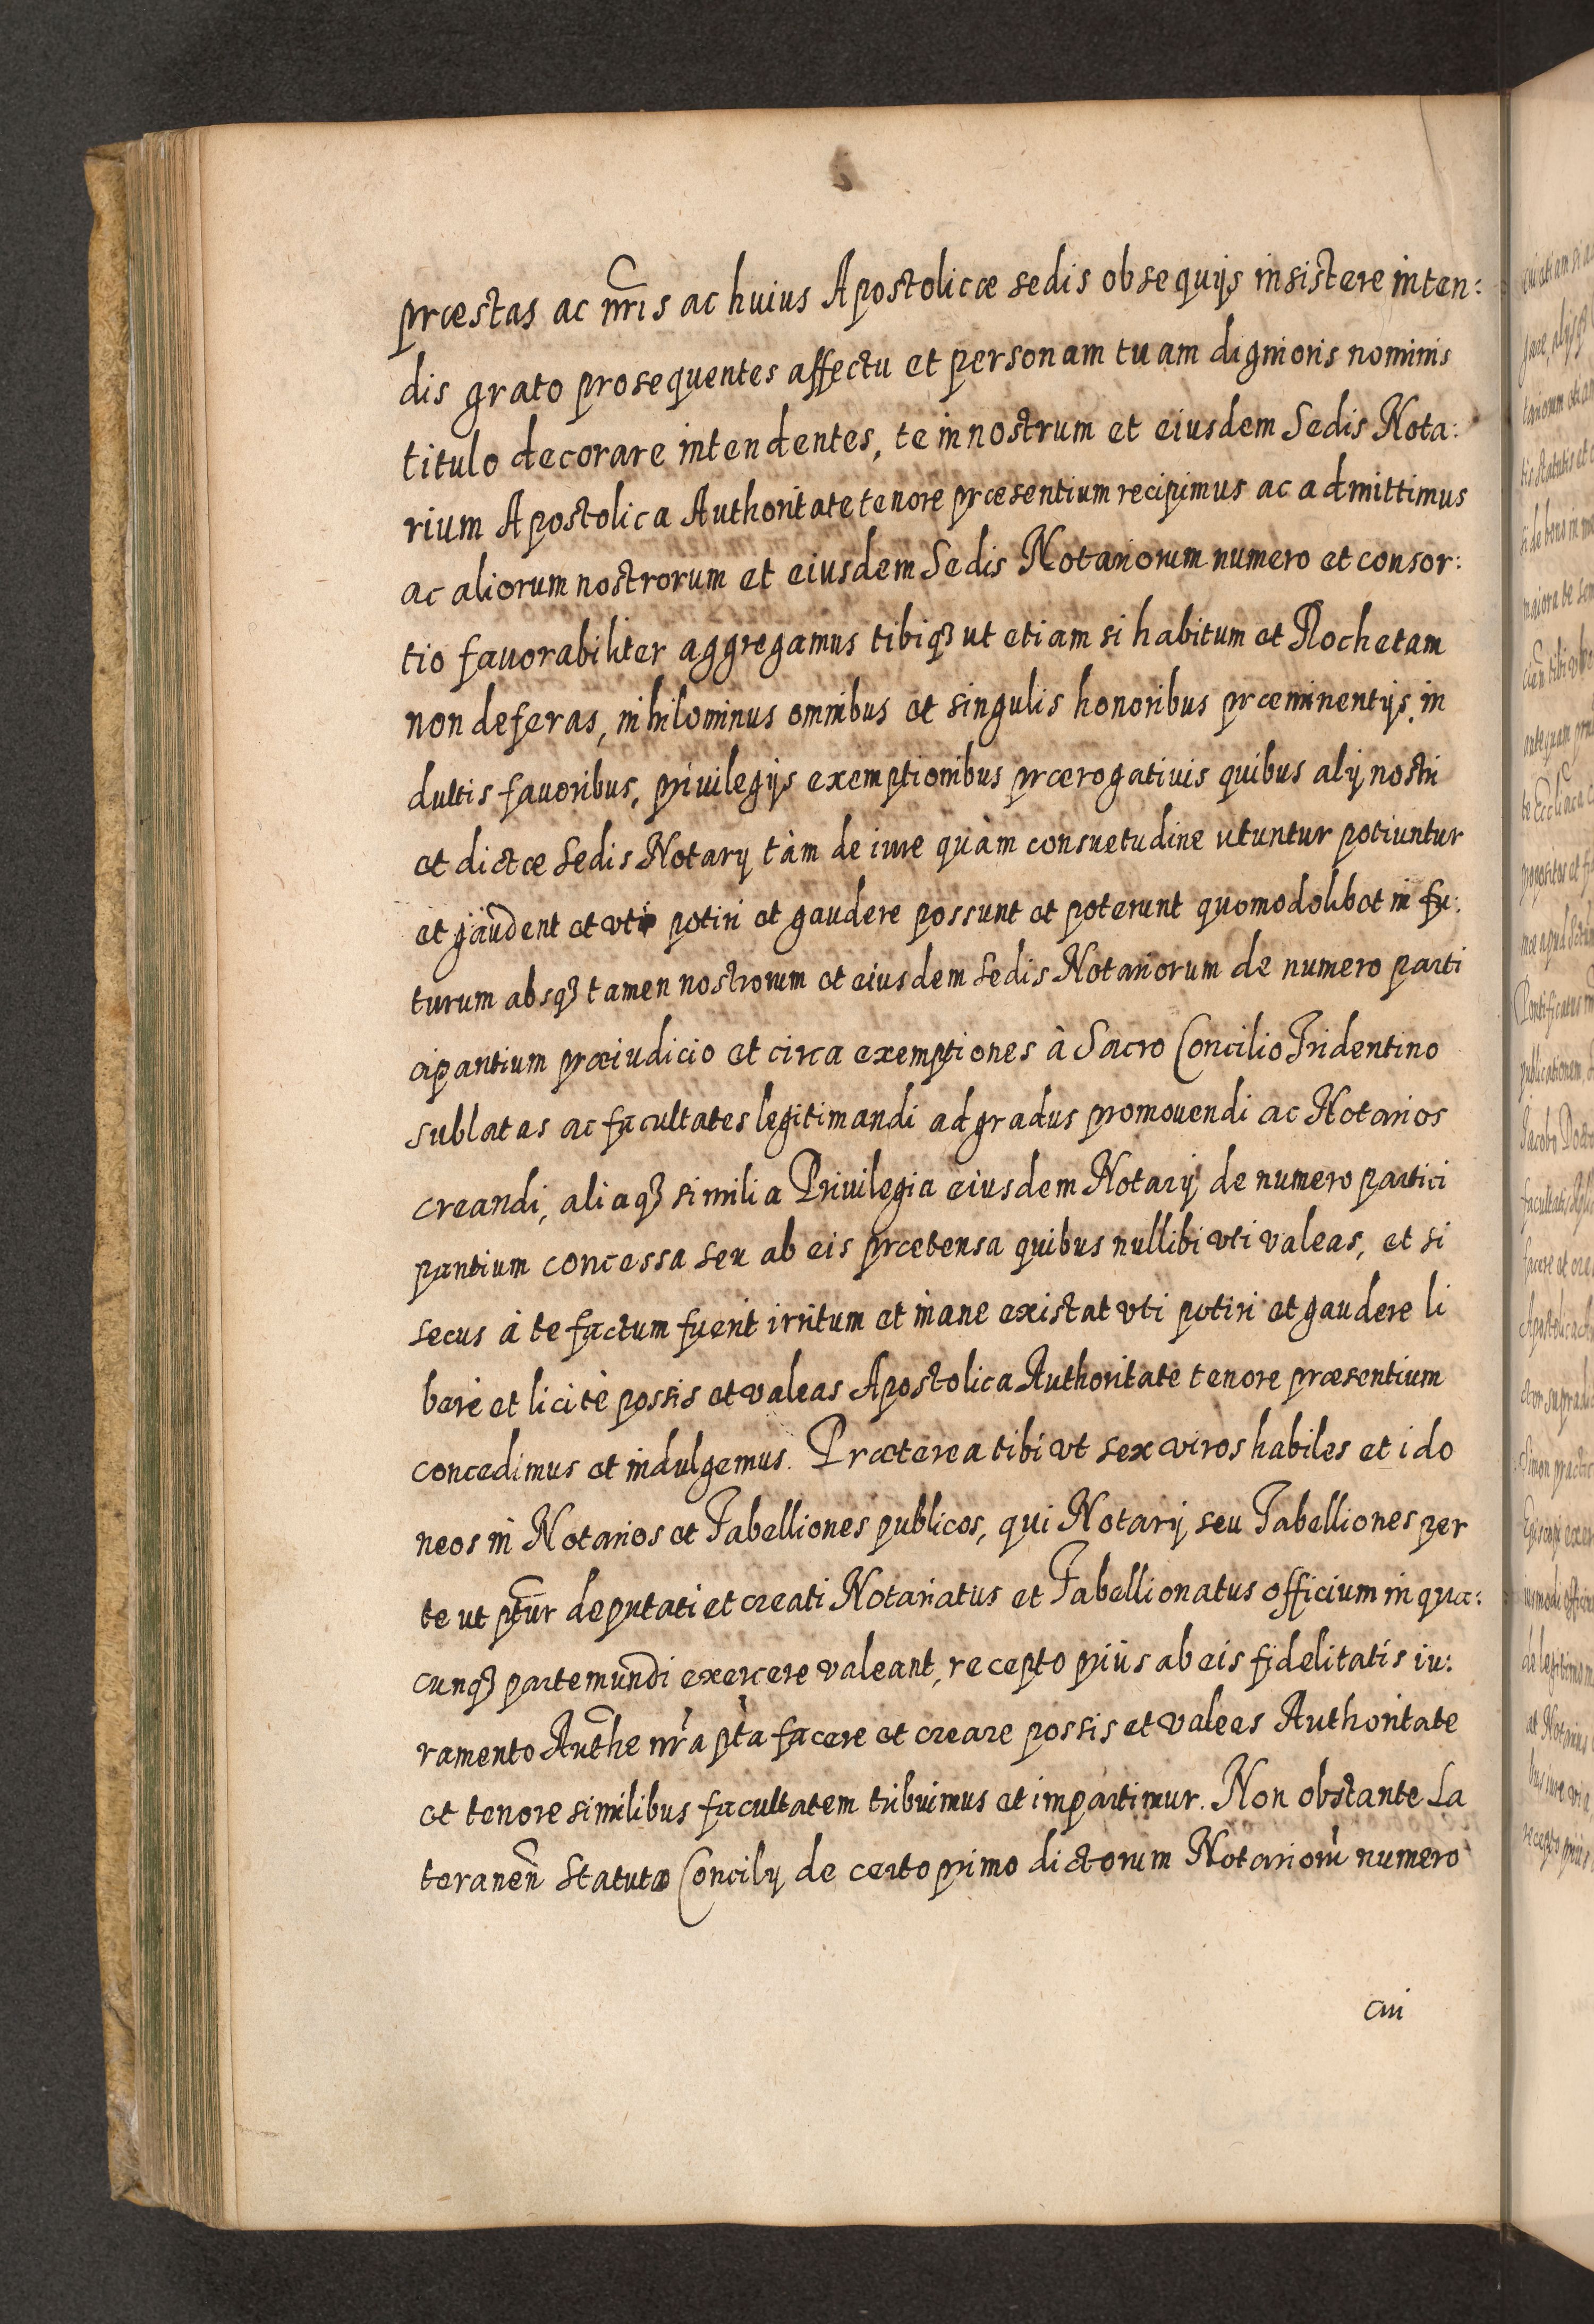 præstas ac nr̃is ac huius Apostolicæ sedis obsequijs insistere inten:
dis grato prosequentes affectu et personam tuam dignioris nominis
titulo decorare intendentes, te in nostrum et eiusdem Sedis Nota:
rium Apostolica Authoritate tenore præsentium recipimus ac admittimus
ac aliorum nostrorum et eiusdem Sedis Notariorum numero et consor:
tio fauorabiliter aggregamus tibiqꝫ ut etiam si habitum et Rochetam
non deferas, nihilominus omnibus et singulis honoribus præeminentijs, in
dultis fauoribus, priuilegijs exemptionibus prærogatiuis quibus alij nostri
et dictæ Sedis Notarij tàm de iure quàm consuetudine utuntur potiuntur
et gaudent et vti potiri et gaudere possunt et poterunt quomodolibet in fu:
turum absqꝫ tamen nostrorum et eiusdem sedis Notariorum de numero parti
cipantium præiudicio et circa exemptiones à Sacro Concilio Tridentino
sublatas ac facultates legitimandi ad gradus promouendi ac Notarios
creandi, aliaqꝫ similia Priuilegia eiusdem Notarij de numero partici
pantium concessa seu ab eis prætensa quibus nullibi vti valeas, et si
secus à te factum fuerit irritum et inane existat vti potiri et gaudere li
berè et licitè possis et valeas Apostolica Authoritate tenore præsentium
concedimus et indulgemus. Præterea tibi vt sex viros habiles et ido
neos in Notarios et Tabelliones publicos, qui Notarij seu Tabelliones per
te ut pr̃tur deputati et creati Notariatus et Tabellionatus officium in qua:
cunqꝫ parte mundi exercere valeant, recepto priùs ab eis fidelitatis iu:
ramento Authe nr̃a pt̃a facere et creare possis et valees Authoritate
et tenore similibus facultatem tribuimus et impartimur. Non obstante La
teraneñ Statuto Concilij de certo primo dictorum Notarioru᷉ numero
cui